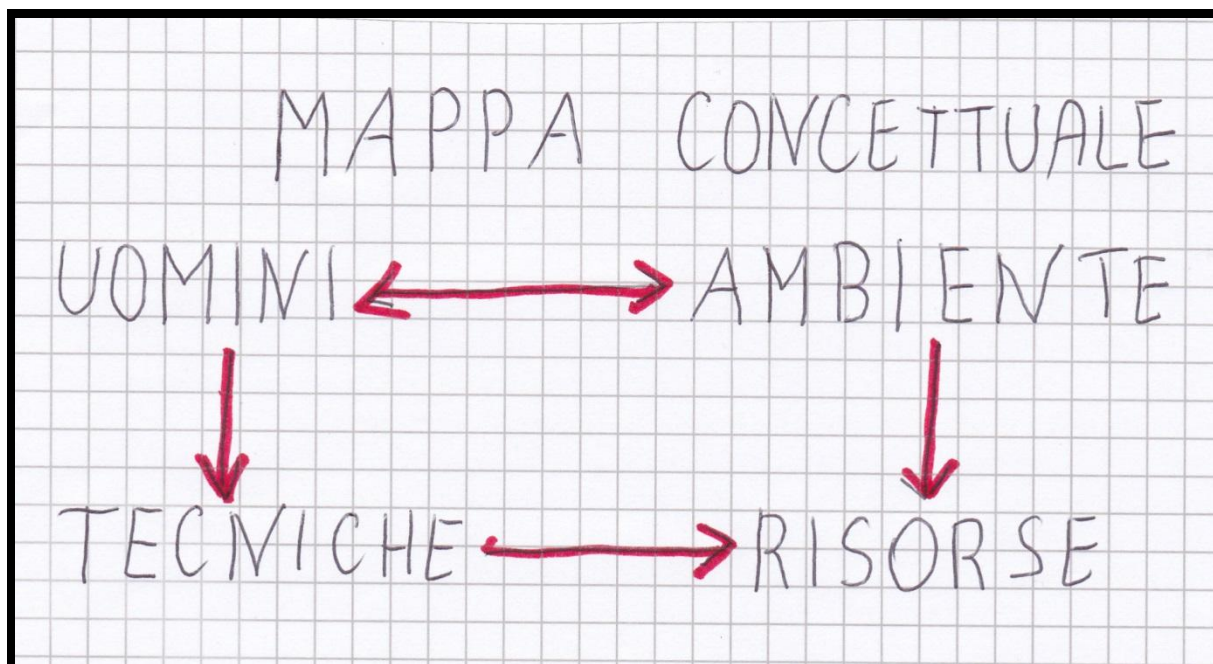 MAPPA CONCETTUALE
UOMINI AMBIENTE
TECNICHE RISORSE